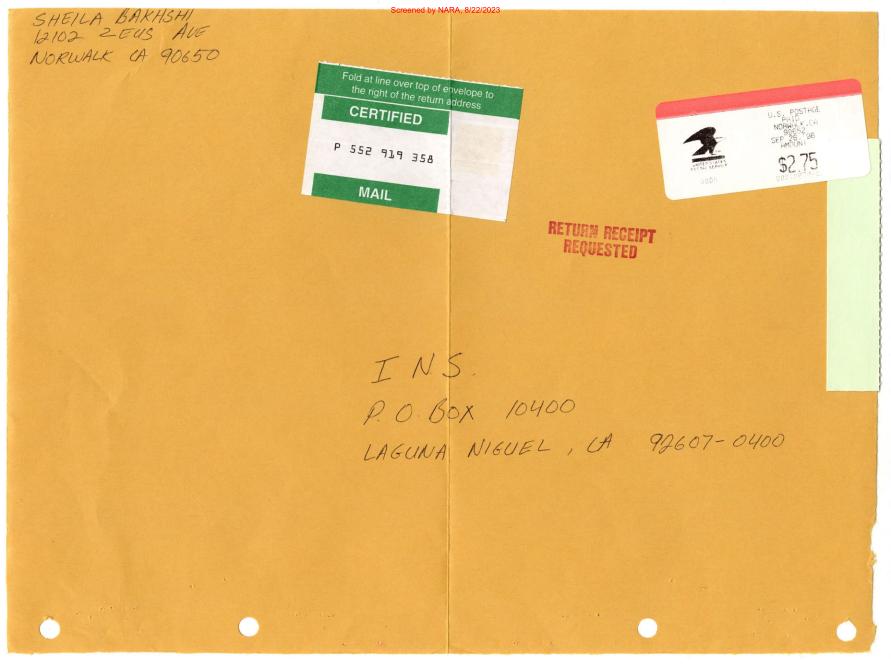 Screened by NARA, 8/22/2023
SHEILA BAKHSHI
12102 ZEUS AVE
NORWALK CA 90650
Fold at line over top of envelope to
the right of the return address
CERTIFIED
P 552 919 358
MAIL
U.S. POSTAGE
PAID
NORWALK, CA
90652
SEP 26, 96
AMOUNT
$2.75
UNITED STATES
POSTAL SERVICE
RETURN RECEIPT
REQUESTED
INS.
P.O. BOX 10400
LAGUNA NIGUEL, CA 92607-0400